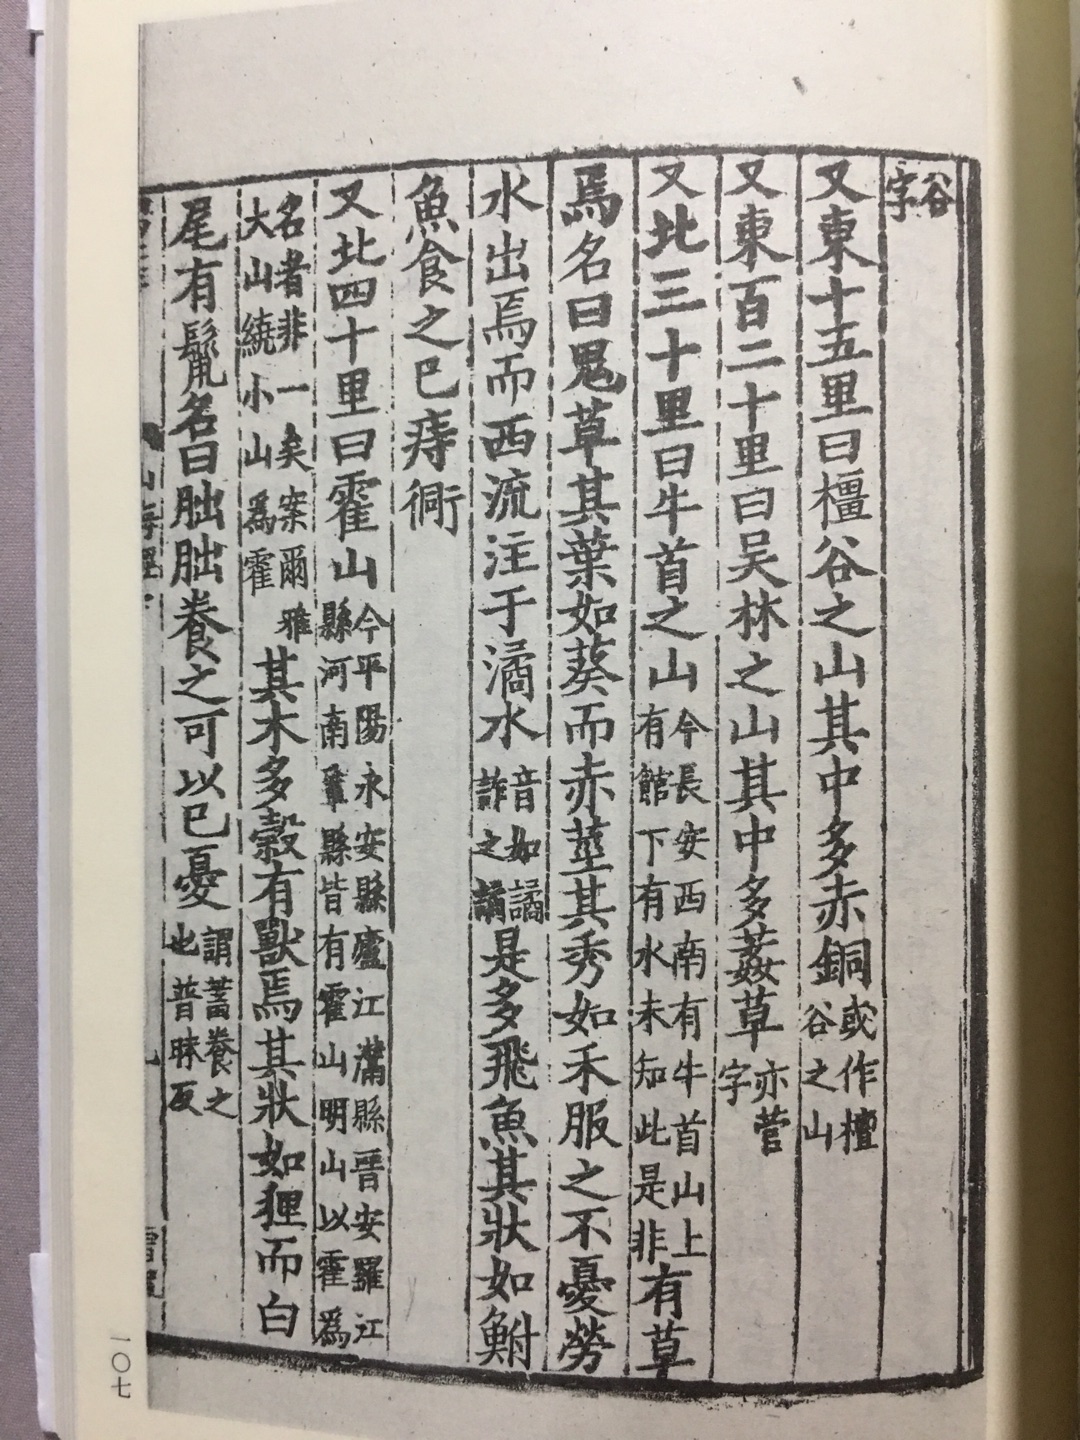 谷字
又東十五里曰橿谷之山其中多赤銅或作檀谷之山
又東百二十里曰吴林之山其中多葌草亦菅字
又北三十里曰牛首之山今長安西南有牛首山上有館下有水未知此是非有草
焉名曰鬼草其葉如葵而赤莖其秀如禾服之不憂勞
水出焉而西流注于潏水音如譎詐之譎是多飛魚其狀如鮒
魚食之已痔衕
又北四十里曰霍山今平陽永安縣廬江灊縣晉安羅江縣河南鞏縣皆有霍山明山以霍爲
名者非一矣案爾雅大山繞小山爲霍其木多榖有獸焉其狀如狸而白
尾有鬣名曰朏朏養之可以已憂謂蓄養之也普昧反
山海經
一〇七